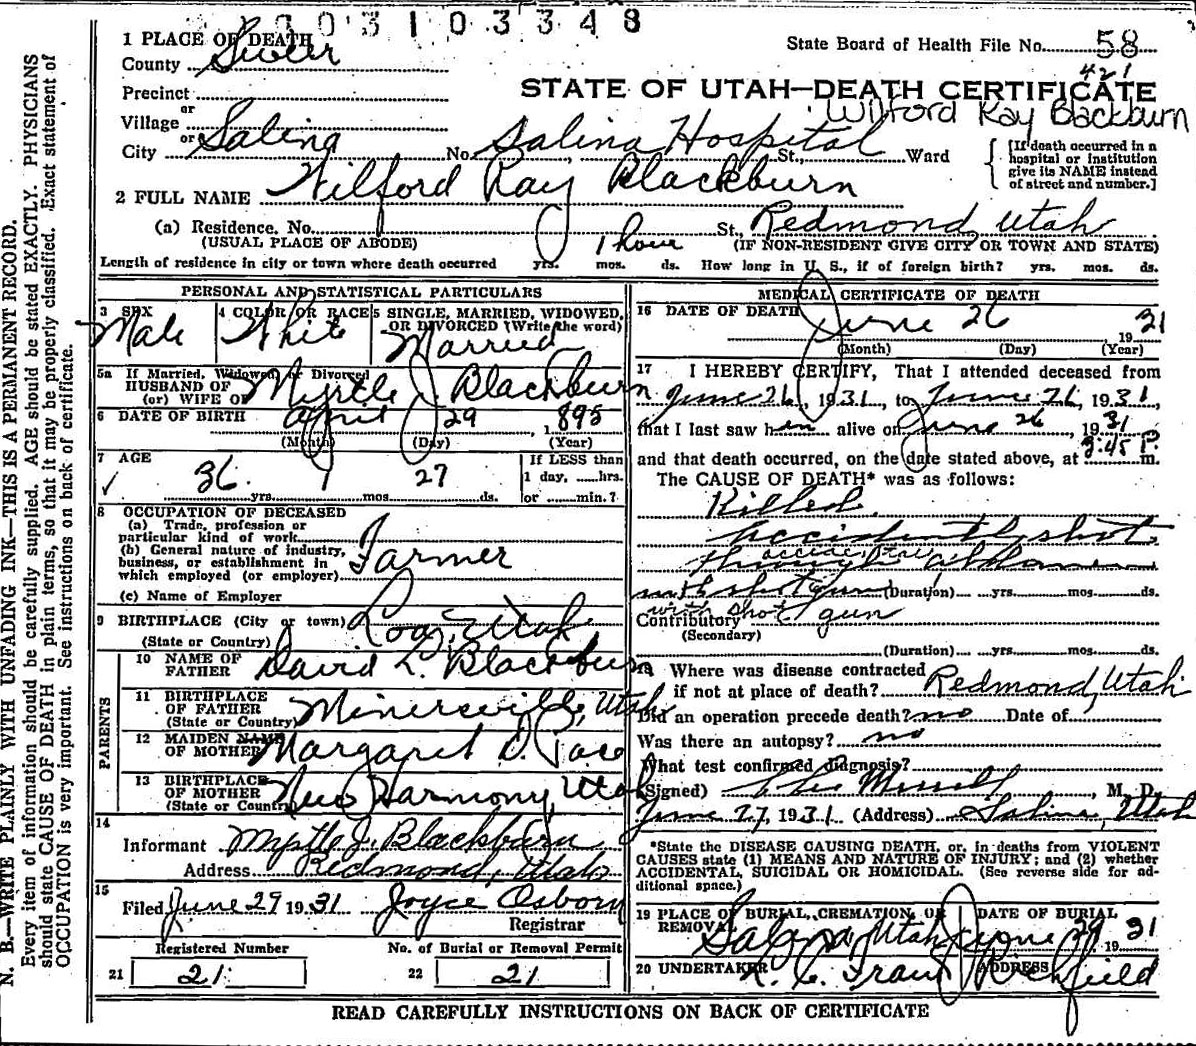 0 0 3 1 0 3 3 4 8
1 PLACE OF DEATH
County Sevier
State Board of Health File No. 58
421
Precinct
or
Village
or
City Salina No. Salina Hospital St., Ward
STATE OF UTAH—DEATH CERTIFICATE
Wilford Ray Blackburn
[If death occurred in a
hospital or institution
give its NAME instead
of street and number.]
2 FULL NAME Wilford Ray Blackburn
(a) Residence. No. St., Redmond, Utah
(USUAL PLACE OF ABODE) (IF NON-RESIDENT GIVE CITY OR TOWN AND STATE)
1 hour
Length of residence in city or town where death occurred yrs. mos. ds. How long in U. S., if of foreign birth? yrs. mos. ds.
PERSONAL AND STATISTICAL PARTICULARS
3 SEX
Male
4 COLOR OR RACE
White
5 SINGLE, MARRIED, WIDOWED,
OR DIVORCED (Write the word)
Married
5a If Married, Widowed or Divorced
HUSBAND OF
(or) WIFE OF Myrtle J. Blackburn
6 DATE OF BIRTH April 29, 1895
(Month) (Day) (Year)
7 AGE
36 yrs. 1 mos. 27 ds.
If LESS than
1 day, ......hrs.
or ......min.?
8 OCCUPATION OF DECEASED
(a) Trade, profession or
particular kind of work
(b) General nature of industry,
business, or establishment in
which employed (or employer)
Farmer
(c) Name of Employer
9 BIRTHPLACE (City or town) Loa, Utah
(State or Country)
PARENTS
10 NAME OF
FATHER David L. Blackburn
11 BIRTHPLACE
OF FATHER
(State or Country) Minersville, Utah
12 MAIDEN NAME
OF MOTHER Margaret D. Pace
13 BIRTHPLACE
OF MOTHER
(State or Country) New Harmony, Utah
14
Informant Myrtle J. Blackburn
Address Redmond, Utah
15
Filed June 29 1931 Joyce Osborn
Registrar
Registered Number
21 21
No. of Burial or Removal Permit
22 21
MEDICAL CERTIFICATE OF DEATH
16 DATE OF DEATH
June 26 1931
(Month) (Day) (Year)
17 I HEREBY CERTIFY, That I attended deceased from
June 26, 1931, to June 26, 1931,
that I last saw him alive on June 26, 1931
and that death occurred, on the date stated above, at 3:45 P. m.
The CAUSE OF DEATH* was as follows:
Killed
accidently shot
accidentally
through abdomen
with shot gun (Duration) yrs. mos. ds.
with shot gun
Contributory
(Secondary)
(Duration) yrs. mos. ds.
18 Where was disease contracted
if not at place of death? Redmond, Utah
Did an operation precede death? no Date of
Was there an autopsy? no
What test confirmed diagnosis?
(Signed) , M. D.
June 27, 1931 (Address) Salina, Utah
*State the DISEASE CAUSING DEATH, or, in deaths from VIOLENT
CAUSES state (1) MEANS AND NATURE OF INJURY; and (2) whether
ACCIDENTAL, SUICIDAL OR HOMICIDAL. (See reverse side for ad-
ditional space.)
19 PLACE OF BURIAL, CREMATION, OR
REMOVAL
Salina, Utah
DATE OF BURIAL
June 29, 1931
20 UNDERTAKER
ADDRESS
Richfield
READ CAREFULLY INSTRUCTIONS ON BACK OF CERTIFICATE
N. B.—WRITE PLAINLY WITH UNFADING INK—THIS IS A PERMANENT RECORD.
Every item of information should be carefully supplied. AGE should be stated EXACTLY. PHYSICIANS
should state CAUSE OF DEATH in plain terms, so that it may be properly classified. Exact statement of
OCCUPATION is very important. See instructions on back of certificate.